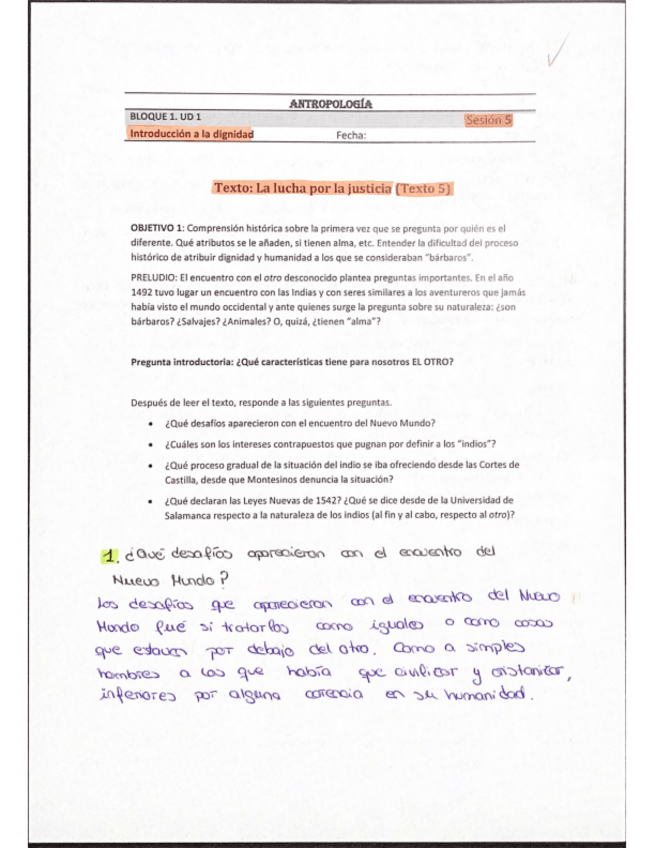 ANTROPOLOGÍA
BLOQUE 1. UD 1
Sesión 5
Introducción a la dignidad
Fecha:
Texto: La lucha por la justicia (Texto 5)
OBJETIVO 1: Comprensión histórica sobre la primera vez que se pregunta por quién es el
diferente. Qué atributos se le añaden, si tienen alma, etc. Entender la dificultad del proceso
histórico de atribuir dignidad y humanidad a los que se consideraban "bárbaros".
PRELUDIO: El encuentro con el otro desconocido plantea preguntas importantes. En el año
1492 tuvo lugar un encuentro con las Indias y con seres similares a los aventureros que jamás
había visto el mundo occidental y ante quienes surge la pregunta sobre su naturaleza: ¿son
bárbaros? ¿Salvajes? ¿Animales? O, quizá, ¿tienen "alma"?
Pregunta introductoria: ¿Qué características tiene para nosotros EL OTRO?
Después de leer el texto, responde a las siguientes preguntas.
• ¿Qué desafíos aparecieron con el encuentro del Nuevo Mundo?
• ¿Cuáles son los intereses contrapuestos que pugnan por definir a los "indios"?
• ¿Qué proceso gradual de la situación del indio se iba ofreciendo desde las Cortes de
Castilla, desde que Montesinos denuncia la situación?
• ¿Qué declaran las Leyes Nuevas de 1542? ¿Qué se dice desde de la Universidad de
Salamanca respecto a la naturaleza de los indios (al fin y al cabo, respecto al otro)?
1. ¿Qué desafíos aparecieron con el encuentro del
Nuevo Mundo?
Los desafíos que aparecieron con el encuentro del Nuevo
Mundo fué si tratarlos como iguales o como cosas
que estaban por debajo del otro. Como a simples
hombres a los que había que civilizar y cristianizar,
inferiores por alguna carencia en su humanidad.